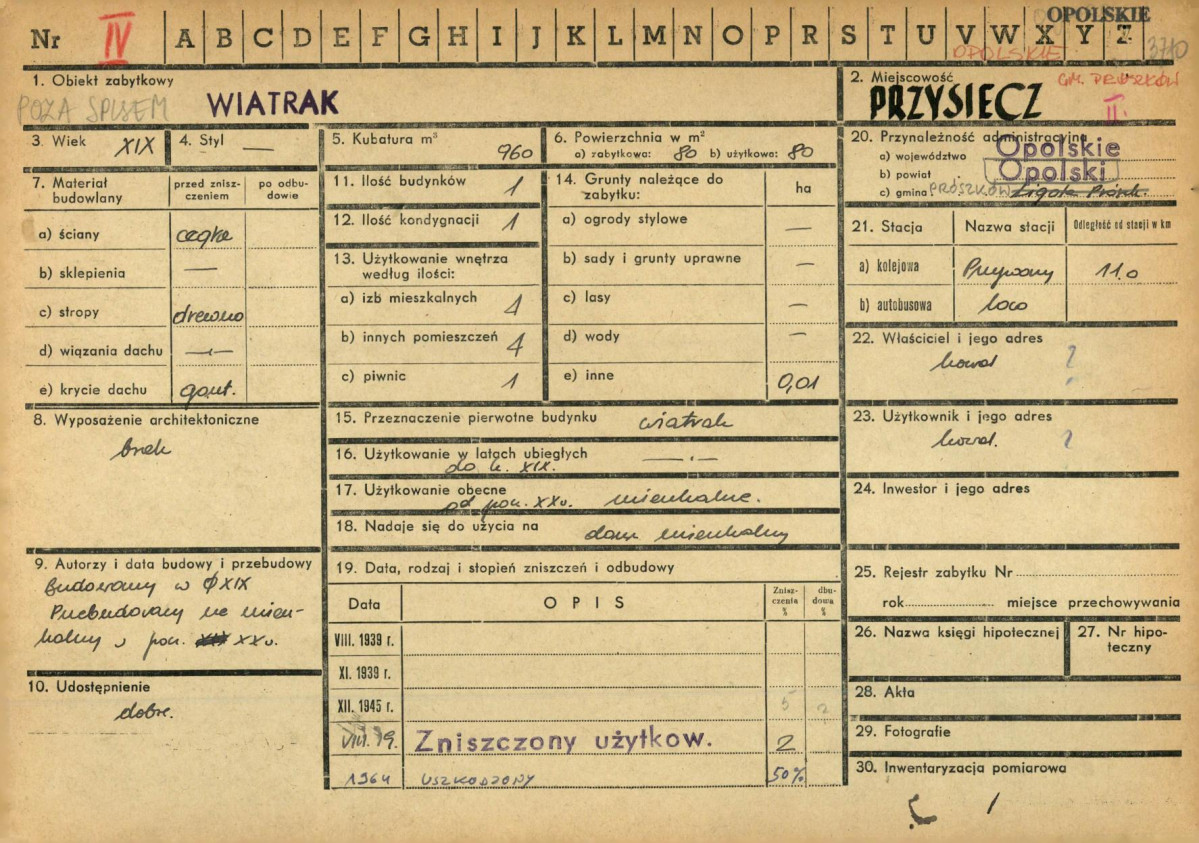 OPOLSKIE
Nr IV A B C D E F G H I J K L M N O P R S T U V W X Y Z 3710
OPOLSKIE
1. Obiekt zabytkowy
POZA SPISEM WIATRAK
2. Miejscowość GM. PRÓSZKÓW
PRZYSIECZ
II.
3. Wiek XIX
4. Styl —
5. Kubatura m³ 960
6. Powierzchnia w m²
a) zabytkowa: 80 b) użytkowa: 80
20. Przynależność administracyjna
a) województwo Opolskie
b) powiat Opolski
c) gmina PRÓSZKÓW
7. Materiał budowlany
przed zniszczeniem
po odbudowie
a) ściany cegła
b) sklepienia —
c) stropy drewno
d) wiązania dachu —"—
e) krycie dachu gont.
11. Ilość budynków 1
12. Ilość kondygnacji 1
13. Użytkowanie wnętrza według ilości:
a) izb mieszkalnych 1
b) innych pomieszczeń 1
c) piwnic 1
14. Grunty należące do zabytku: ha
a) ogrody stylowe —
b) sady i grunty uprawne —
c) lasy —
d) wody —
e) inne 0,01
21. Stacja Nazwa stacji Odległość od stacji w km
a) kolejowa Przywory 11.0
b) autobusowa loco
22. Właściciel i jego adres
kowal ?
23. Użytkownik i jego adres
kowal. ?
8. Wyposażenie architektoniczne
brak
15. Przeznaczenie pierwotne budynku wiatrak
16. Użytkowanie w latach ubiegłych —"—
do k. XIX.
17. Użytkowanie obecne mieszkalne.
od pocz. XX w.
18. Nadaje się do użycia na dom mieszkalny
24. Inwestor i jego adres
9. Autorzy i data budowy i przebudowy
Budowany w XIX
Przebudowany na miesz-
kalny w pocz. XX w.
10. Udostępnienie
dobre.
19. Data, rodzaj i stopień zniszczeń i odbudowy
Data OPIS Zniszczenia % dbudowa %
VIII. 1939 r.
XI. 1939 r.
XII. 1945 r. 5 2
VIII. 59. Zniszczony użytkow. 2
1964 USZKODZONY 50%
25. Rejestr zabytku Nr
rok miejsce przechowywania
26. Nazwa księgi hipotecznej
27. Nr hipoteczny
28. Akta
29. Fotografie
30. Inwentaryzacja pomiarowa